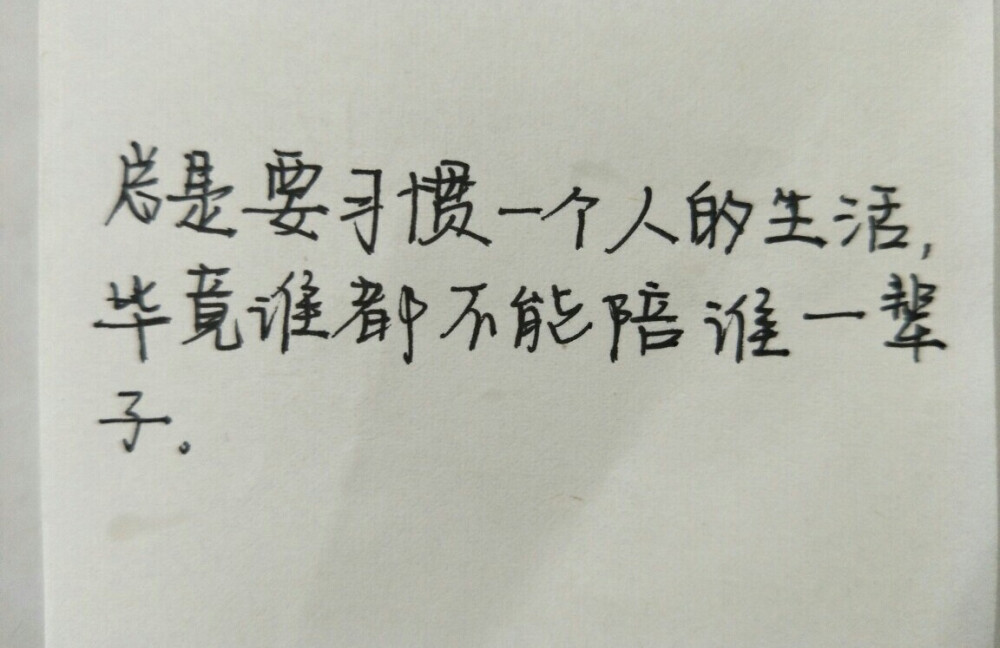 总是要习惯一个人的生活,
毕竟谁都不能陪谁一辈
子。